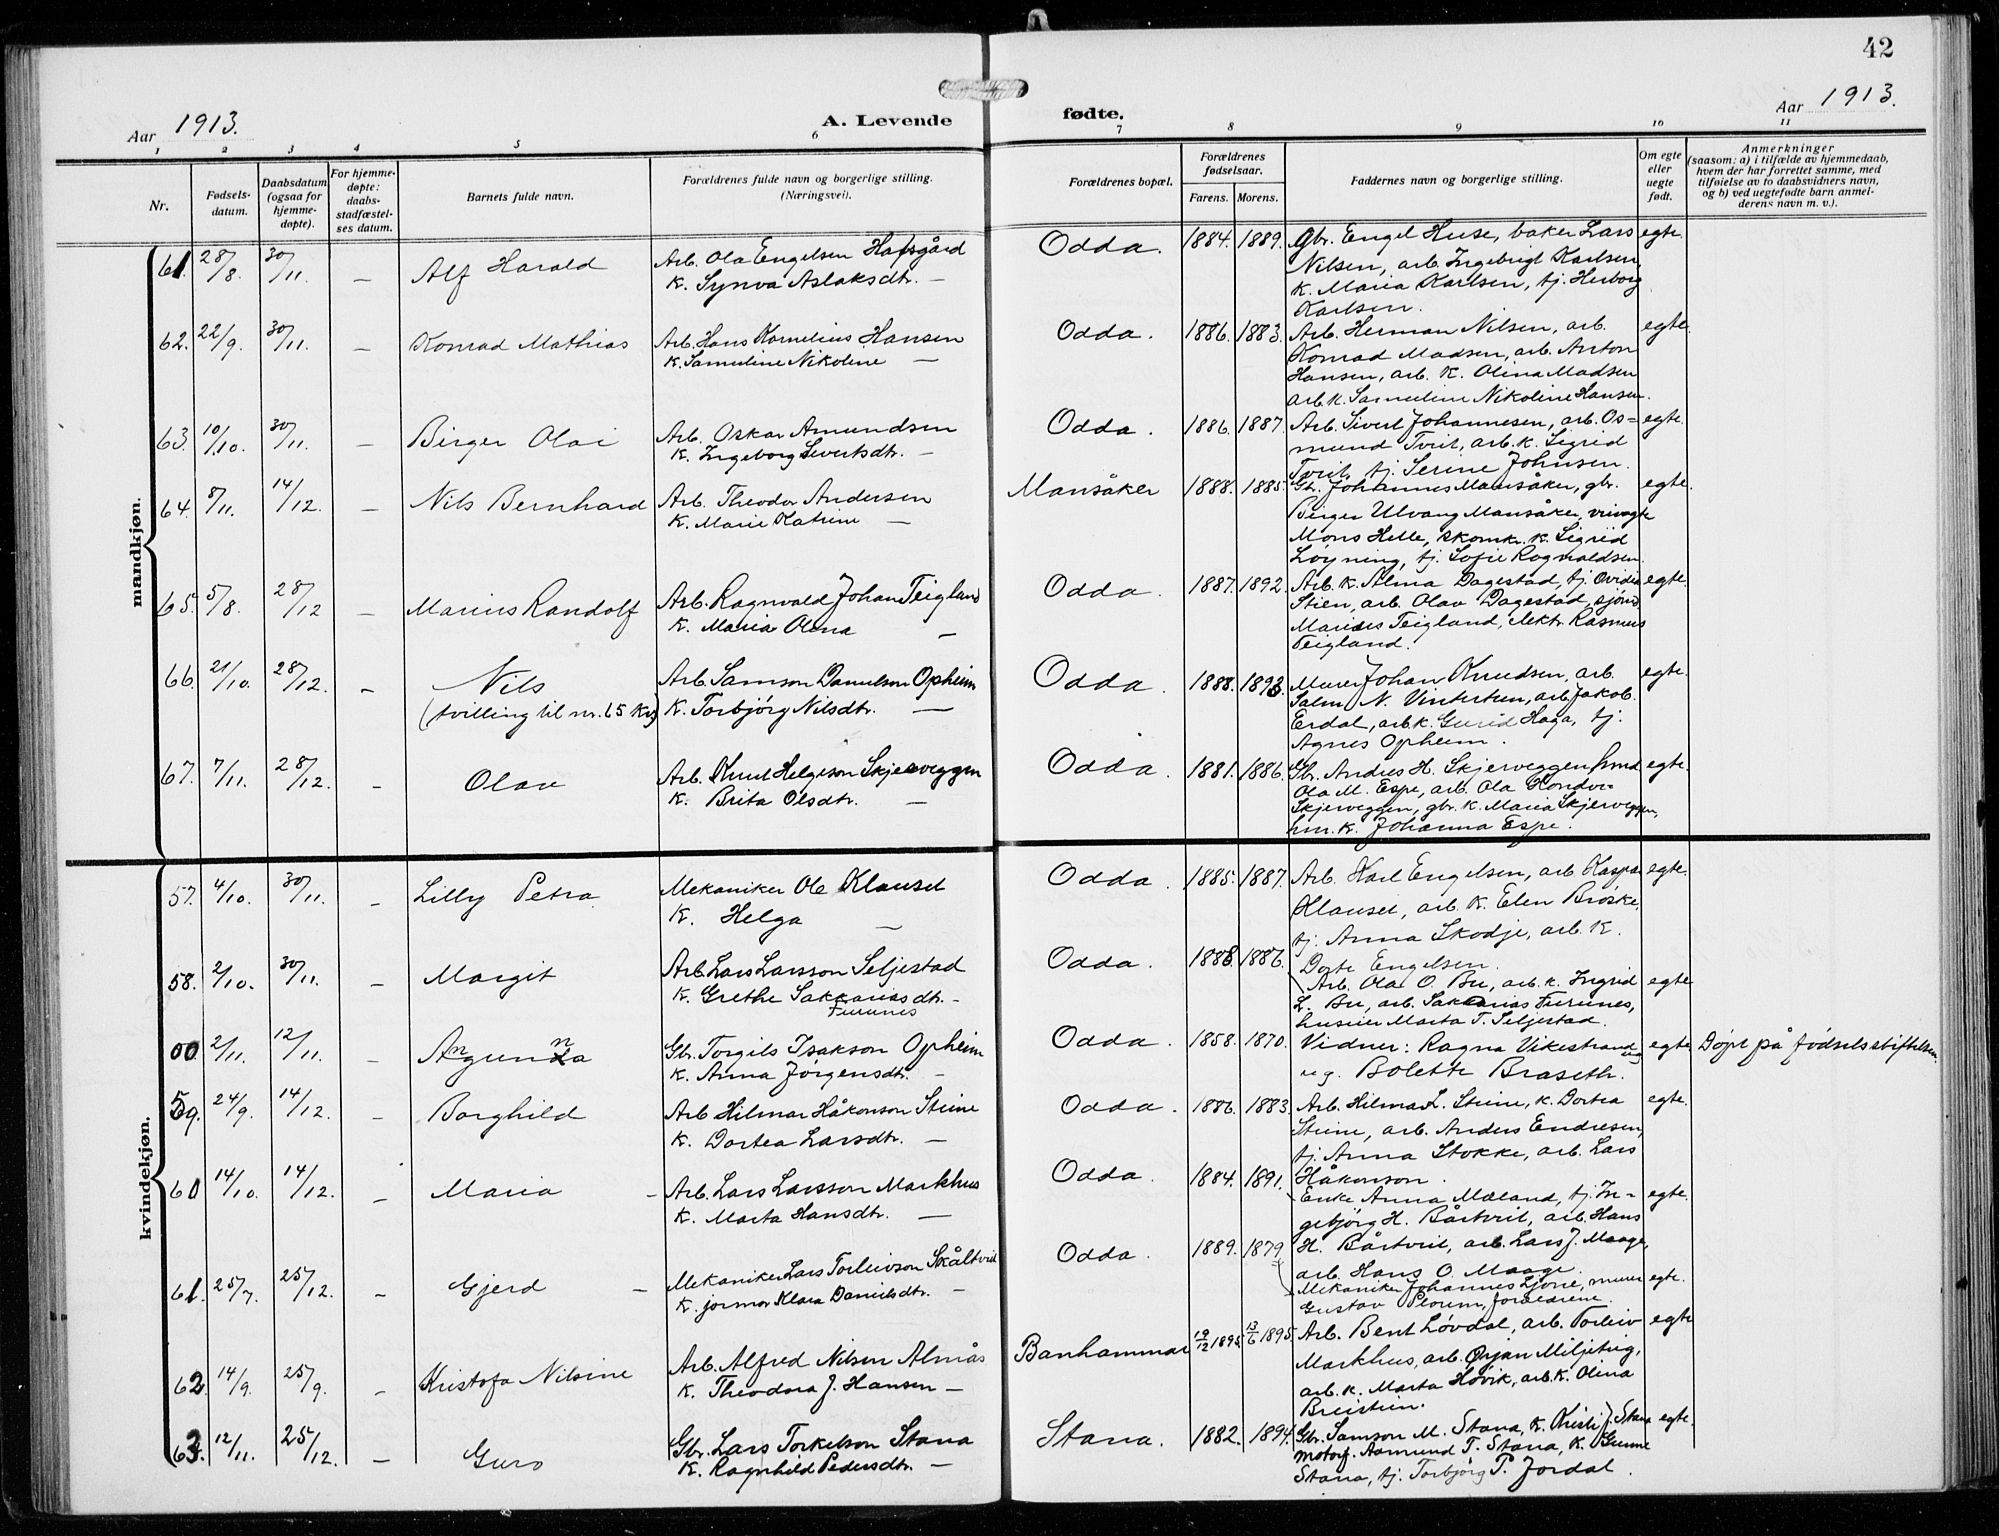 42
Aar 1913.
A. Levende
fødte.
Aar 1913.
1 2 3 4 5 6 7 8 9 10 11
Nr.
Fødsels-
datum.
Daabsdatum
(ogsaa for
hjemme-
døpte).
For hjemme-
døpte:
daabs-
stadfæstel-
ses datum.
Barnets fulde navn.
Forældrenes fulde navn og borgerlige stilling.
(Næringsvei).
Forældrenes bopæl.
Forældrenes
fødselsaar.
Farens. Morens.
Faddernes navn og borgerlige stilling.
Om egte
eller
uegte
født.
Anmerkninger
(saasom: a) i tilfælde av hjemmedaab,
hvem der har forrettet samme, med
tilføielse av to daabsvidners navn,
og b) ved uegtefødte barn anmel-
derens navn m. v.).
mandkjøn.
61. 28/8. 30/11. — Alf Harald
Arb. Ola Engelsen Hafsgård
K. Synva Aslaksdtr. —
Odda. 1884. 1889.
Gbr. Engel Huse, baker Lars
Nilsen, arb. Ingebrigt Karlsen,
K. Maria Karlsen, tj. Herborg
Karlsen.
egte.
62. 22/9. 30/11. — Konrad Mathias
Arb. Hans Kornelius Hansen
K. Samuline Nikoline —
Odda. 1886. 1883.
Arb. Herman Nilsen, arb.
Konrad Madsen, arb. Anton
Hansen, arb. K. Olina Madsen
arb. K. Samuline Nikoline Hansen.
egte.
63. 10/10. 30/11. — Birger Olai
Arb. Oskar Amundsen
K. Ingeborg Sivertsdtr. —
Odda. 1886. 1887.
Arb. Sivert Johannesen, arb. Os=
mund Tveit, arb. K. Sigrid
Tveit, tj. Serine Johnsen.
egte.
64. 8/11. 14/12. — Nils Bernhard
Arb. Theodor Andersen
K. Marie Katrine —
Mansåker 1888. 1885.
Gbr. Johannes Mansåker, gbr.
Birger Ulvang Mansåker,
Mons Helle, skomk. K. Sigrid
Løyning, tj. Sofie Ragnvaldsen.
egte.
65. 5/8. 28/12 — Marius Randolf
Arb. Ragnvald Johan Teigland
K. Maria Olina —
Odda. 1887. 1892.
Arb. K. Alma Dagestad, tj. Ovidia
Stien, arb. Olav Dagestad, sjøm.
Marius Teigland, elektr. Rasmus
Teigland.
egte.
66. 21/10. 28/12. — Nils
(tvilling til nr. 65 Kv.)
Arb. Samson Danielson Opheim
K. Torbjørg Nilsdtr. —
Odda. 1888. 1893.
Murer Johan Knudsen, arb.
Salm. N. Vintertun, arb. Jakob
Erdal, arb. K. Gurid Haga, tj.
Agnes Opheim.
egte.
67. 7/11. 28/12. — Olav
Arb. Knut Helgeson Skjerveggen
K. Brita Olsdtr. —
Odda. 1881. 1886.
Gbr. Andres H. Skjerveggen,
Ola M. Espe, arb. Ola
Skjerveggen, gbr. K. Maria Skjerveggen,
hm. K. Johanna Espe.
egte.
kvindekjøn.
57. 4/10. 30/11. — Lilly Petra
Mekaniker Ole Klauset
K. Helga —
Odda. 1885. 1887.
Arb. Karl Engelsen, arb. Kaspar
Klauset, arb. K. Elen Brøske,
tj. Anna Skodje, arb. K.
Dorte Engelsen.
egte.
58. 2/10. 30/11. — Margit
Arb. Lars Larsson Seljestad
K. Grethe Sakkariasdtr. —
Furunes
Odda. 1888. 1886.
Arb. Ola O. Bu, arb. K. Ingrid
L. Bu, arb. Sakkarias Furunes,
husier Marta T. Seljestad.
egte
00 2/11. 12/11. — Angunna
Gbr. Torgils Isakson Opheim
K. Anna Jørgensdtr. —
Odda. 1858. 1870.
Vidner: Ragna Vikestrand ug
ug. Bolette Braseth.
egte. Døpt på fødselsstiftelsen.
59. 24/9. 14/12. — Borghild
Arb. Hilmar Håkonson Steine
K. Dortea Larsdtr. —
Odda. 1886. 1883.
Arb. Hilmar L. Steine, K. Dortea
Steine, arb. Anders Endresen,
tj. Anna Stokke, arb. Lars
Håkonson.
egte.
60 14/10. 14/12. — Maria —
Arb. Lars Larsson Markhus
K. Marta Hansdtr. —
Odda. 1884. 1891.
Enke Anna Mæland, tj. In=
gebjørg H. Båstveit, arb. Hans
H. Båstveit, arb. Lars J. Maage,
arb. Hans O. Maage.
egte.
61. 25/7. 25/12. — Gjerd —
Mekaniker Lars Torleivson Skåltveit
K. jormor Klara Danielsdtr. —
Odda. 1889. 1879
Mekaniker Johannes Ljone, murer
Gustav Plorum, forældrene.
egte.
62. 14/9. 25/9. — Kristofa Nilsine
Arb. Alfred Nilsen Almås
K. Theodora J. Hansen —
Banhammar 19/12 1895. 13/6 1895.
Arb. Bent Løvdal, arb. Torleiv
Markhus, arb. Ørjan Miljeteig,
arb. K. Marta Høvik, arb. K. Olina
Breistien.
egte
63. 12/11. 25/12. — Guro
Gbr. Lars Torkelson Stana
K. Ragnhild Pedersdtr. —
Stana. 1882. 1894.
Gbr. Samson M. Stana, K. Kristi J. Stana
motorf. Aamund T. Stana, K. Gunne
Stana, tj. Torbjørg P. Jordal.
egte.